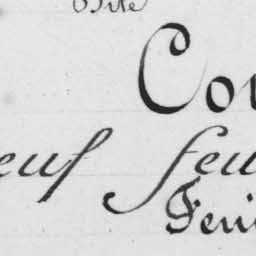 Cou
euf feu
Feui